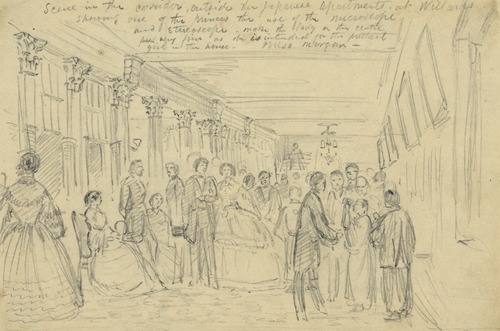 Scene in the corridor, outside the Japanese apartments, at Willards
showing one of the Princes the use of the microscope
and stereoscope. make the lady in the centre
very fine as she is intended for the prettiest
girl in the house. Miss Morgan –